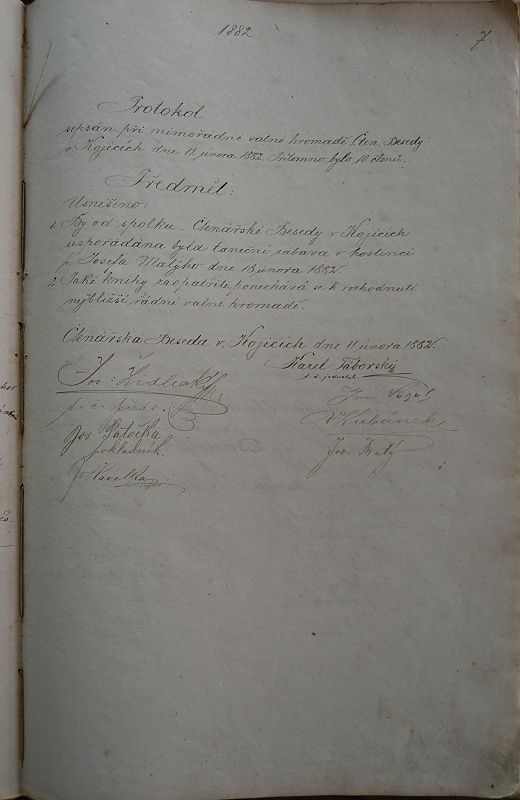 1882
7
Protokol
sepsán při mimořádné valné hromadě Čten. Besedy
v Kojicích dne 11 února 1882. Přítomno bylo 10 členů.
Předmět:
Usnešeno:
1. By od spolku Čtenářské Besedy v Kojicích
uspořádána byla taneční zábava v hostinci
p. Josefa Malýho dne 13 února 1882.
2. Jaké knihy zaopatřiti, ponechává se k rozhodnutí
nejbližší řádné valné hromadě.
Čtenářská Beseda v Kojicích dne 11 února 1882.
Karel Táborský
t. č. jednatel
Jos. Židlický
t. č. předs.
V. Kubánek
Jos. Patočka
pokladník.
Jos. Malý
J. Navrátil